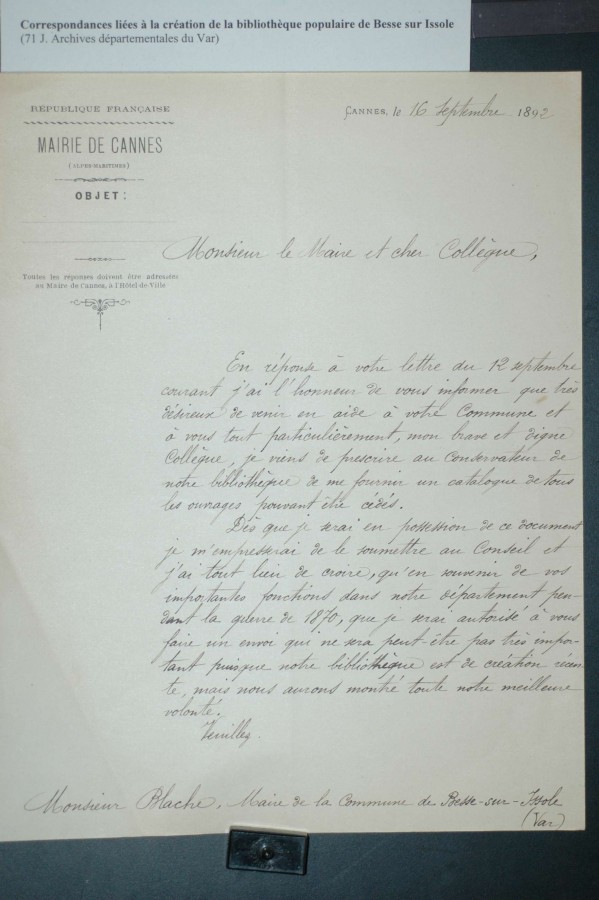 Correspondances liées à la création de la bibliothèque populaire de Besse sur Issole
(71 J. Archives départementales du Var)
RÉPUBLIQUE FRANÇAISE
MAIRIE DE CANNES
(ALPES-MARITIMES)
OBJET :
Toutes les réponses doivent être adressées
au Maire de Cannes, à l'Hôtel-de-Ville
CANNES, le 16 Septembre 1892
Monsieur le Maire et cher Collègue,
En réponse à votre lettre du 12 septembre
courant j'ai l'honneur de vous informer que très
désireux de venir en aide à votre Commune et
à vous tout particulièrement, mon brave et digne
Collègue, je viens de prescrire au Conservateur de
notre bibliothèque de me fournir un catalogue de tous
les ouvrages pouvant être cédés.
Dès que je serai en possession de ce document
je m'empresserai de le soumettre au Conseil et
j'ai tout lieu de croire, qu'en souvenir de vos
importantes fonctions dans notre département pen-
dant la guerre de 1870, que je serai autorisé à vous
faire un envoi qui ne sera peut-être pas très impor-
tant puisque notre bibliothèque est de création récen
te, mais nous aurons montré toute notre meilleure
volonté.
Veuillez.
Monsieur Blache, Maire de la Commune de Besse-sur-Issole
(Var)